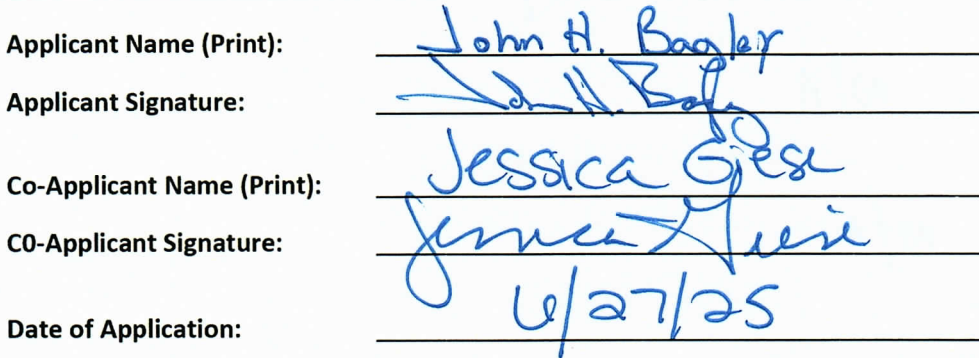 Applicant Name (Print): John H. Bagley
Applicant Signature: John H. Bagley
Co-Applicant Name (Print): Jessica Giese
C0-Applicant Signature: Jessica Giese
Date of Application: 6/27/25